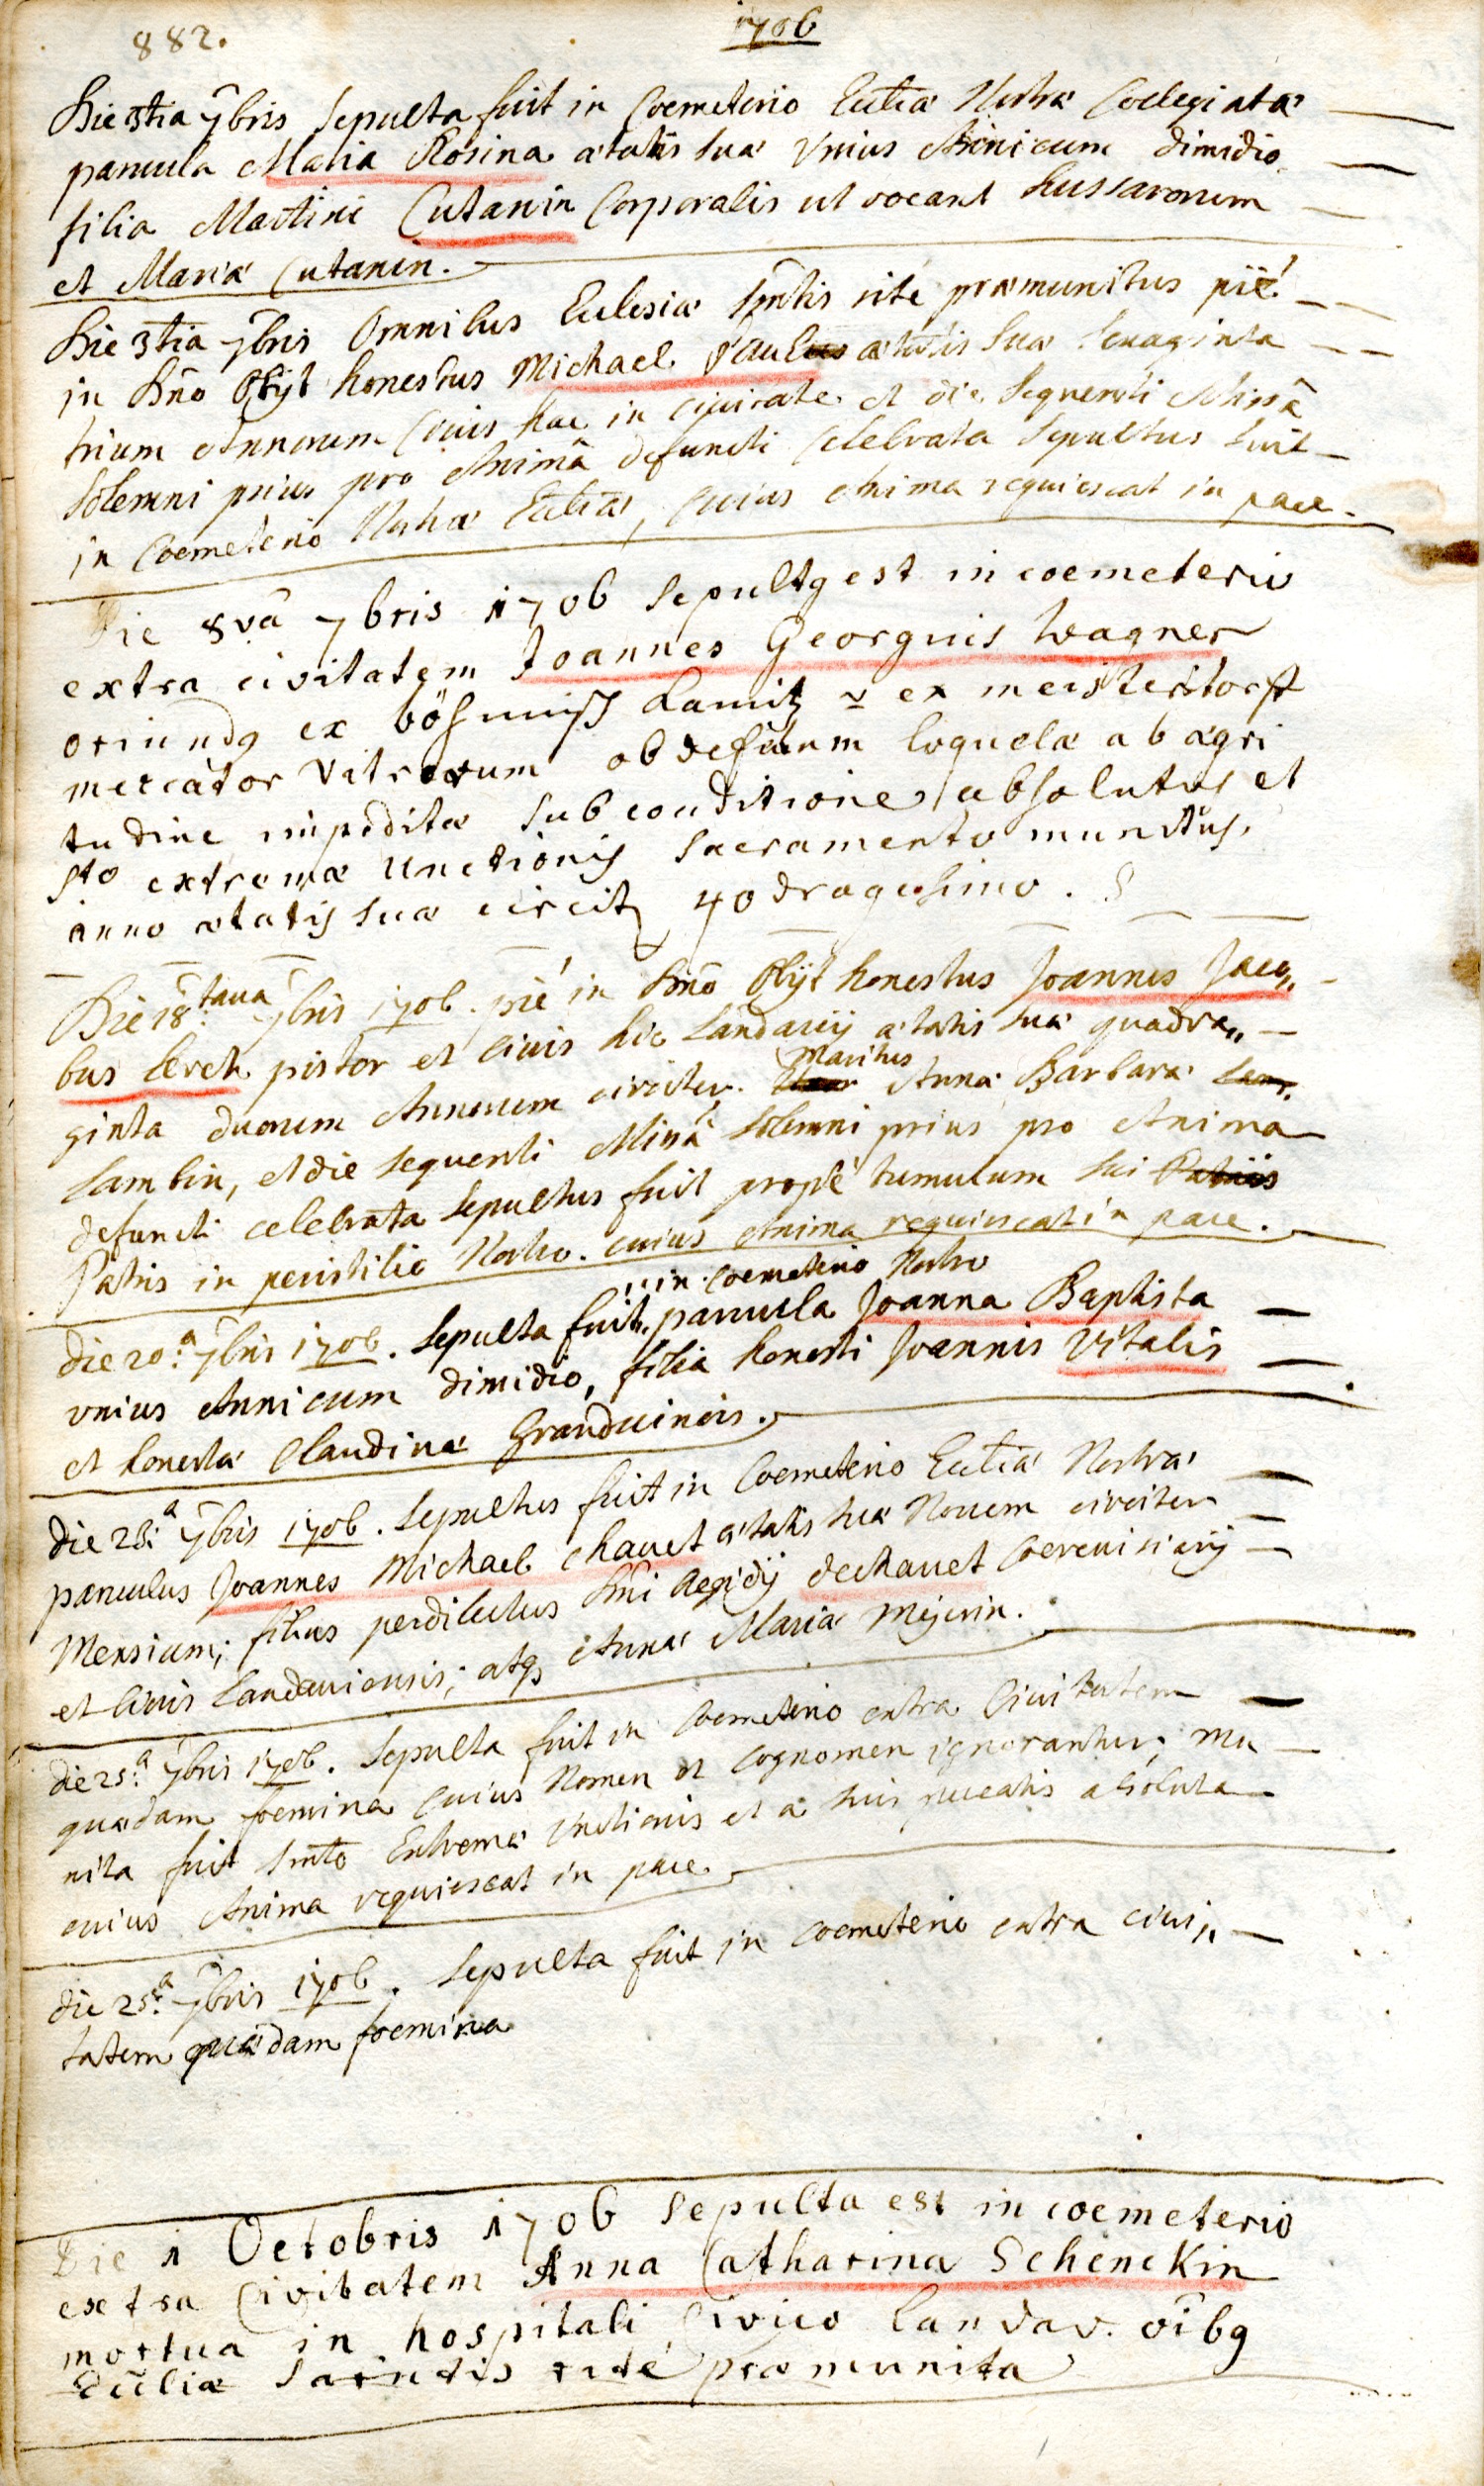 882.
1706
Die 3tia 7bris Sepulta fuit in Coemeterio Eccliæ Nostræ Collegiatæ
parvula Maria Rosina ætatis suæ Vnius Anni cum dimidio
filia Martini Cutanin Corporalis ut vocant hussaronum
et Mariæ Cutanin.
Die 3tia 7bris Omnibus Eclesiæ Smtis rité præmunitus pié
in Dno Obijt honestus Michael Paulus ætatis suæ sexaginta
trium Annorum Civis hac in civitate et die sequenti Missâ
Solemni prius pro Animâ defuncti Celebrata Sepultus fuit
in Coemeterio Nostræ Eccliæ, Cuius Anima requiescat in pace.
Die 8vâ 7bris 1706 Sepult9 est in coemeterio
extra civitatem Joannes Georgius Wagner
oriund9 ex böhmisch Kamitz v ex meistertorft
mercator Vitrorum ob defectum loquelæ ab ægri
tudine impeditæ sub conditione absolutus et
Sto extremæ unctionis sacramento munitus,
anno ætatis suæ circit 40dragesimo.
Die 18tava 7bris 1706. pié in Dno Obijt honestus Joannes Jaco„
bus Lerch pistor et civis hic Landavij ætatis suæ quadra„
ginta duorum Annorum circiter. Maritus Annæ Barbaræ
Lambin, et die sequenti Missâ solemni prius pro Anima
defuncti celebrata sepultus fuit propé tumulum sui
Patris in peristilio Nostro. cuius Anima requiescat in pace.
in Coemeterio Nostro
die 20.a 7bris 1706. Sepulta fuit parvula Joanna Baptista
vnius Anni cum dimidio, filia honesti Joannis Vitalis
et honestæ Claudinæ Granduinois.
die 23.a 7bris 1706. Sepultus fuit in Coemeterio Eccliæ Nostræ
parvulus Joannes Michael Chauet ætatis suæ Nouem circiter
Mensium; filius perdilectus Dni Aegidij dechauet Coereuisiarij
et Civis Landaviensis; atq Annæ Mariæ Mejerin.
die 25.a 7bris 1706. Sepulta fuit in Coemeterio extra Civitatem
quædam foemina Cuius Nomen et Cognomen ignorantur; Mu
nita fuit Smto Extremæ Vnctionis et a suis peccatis absoluta
cuius Anima requiescat in pace.
die 25.a 7bris 1706. Sepulta fuit in Coemeterio extra civi„
tatem quædam foemina
Die 1 Octobris 1706 Sepulta est in coemeterio
extra Civitatem Anna Catharina Schenckin
mortua in hospitali Civico landav. oîb9
Ecclîæ Sacntis rité præmunita